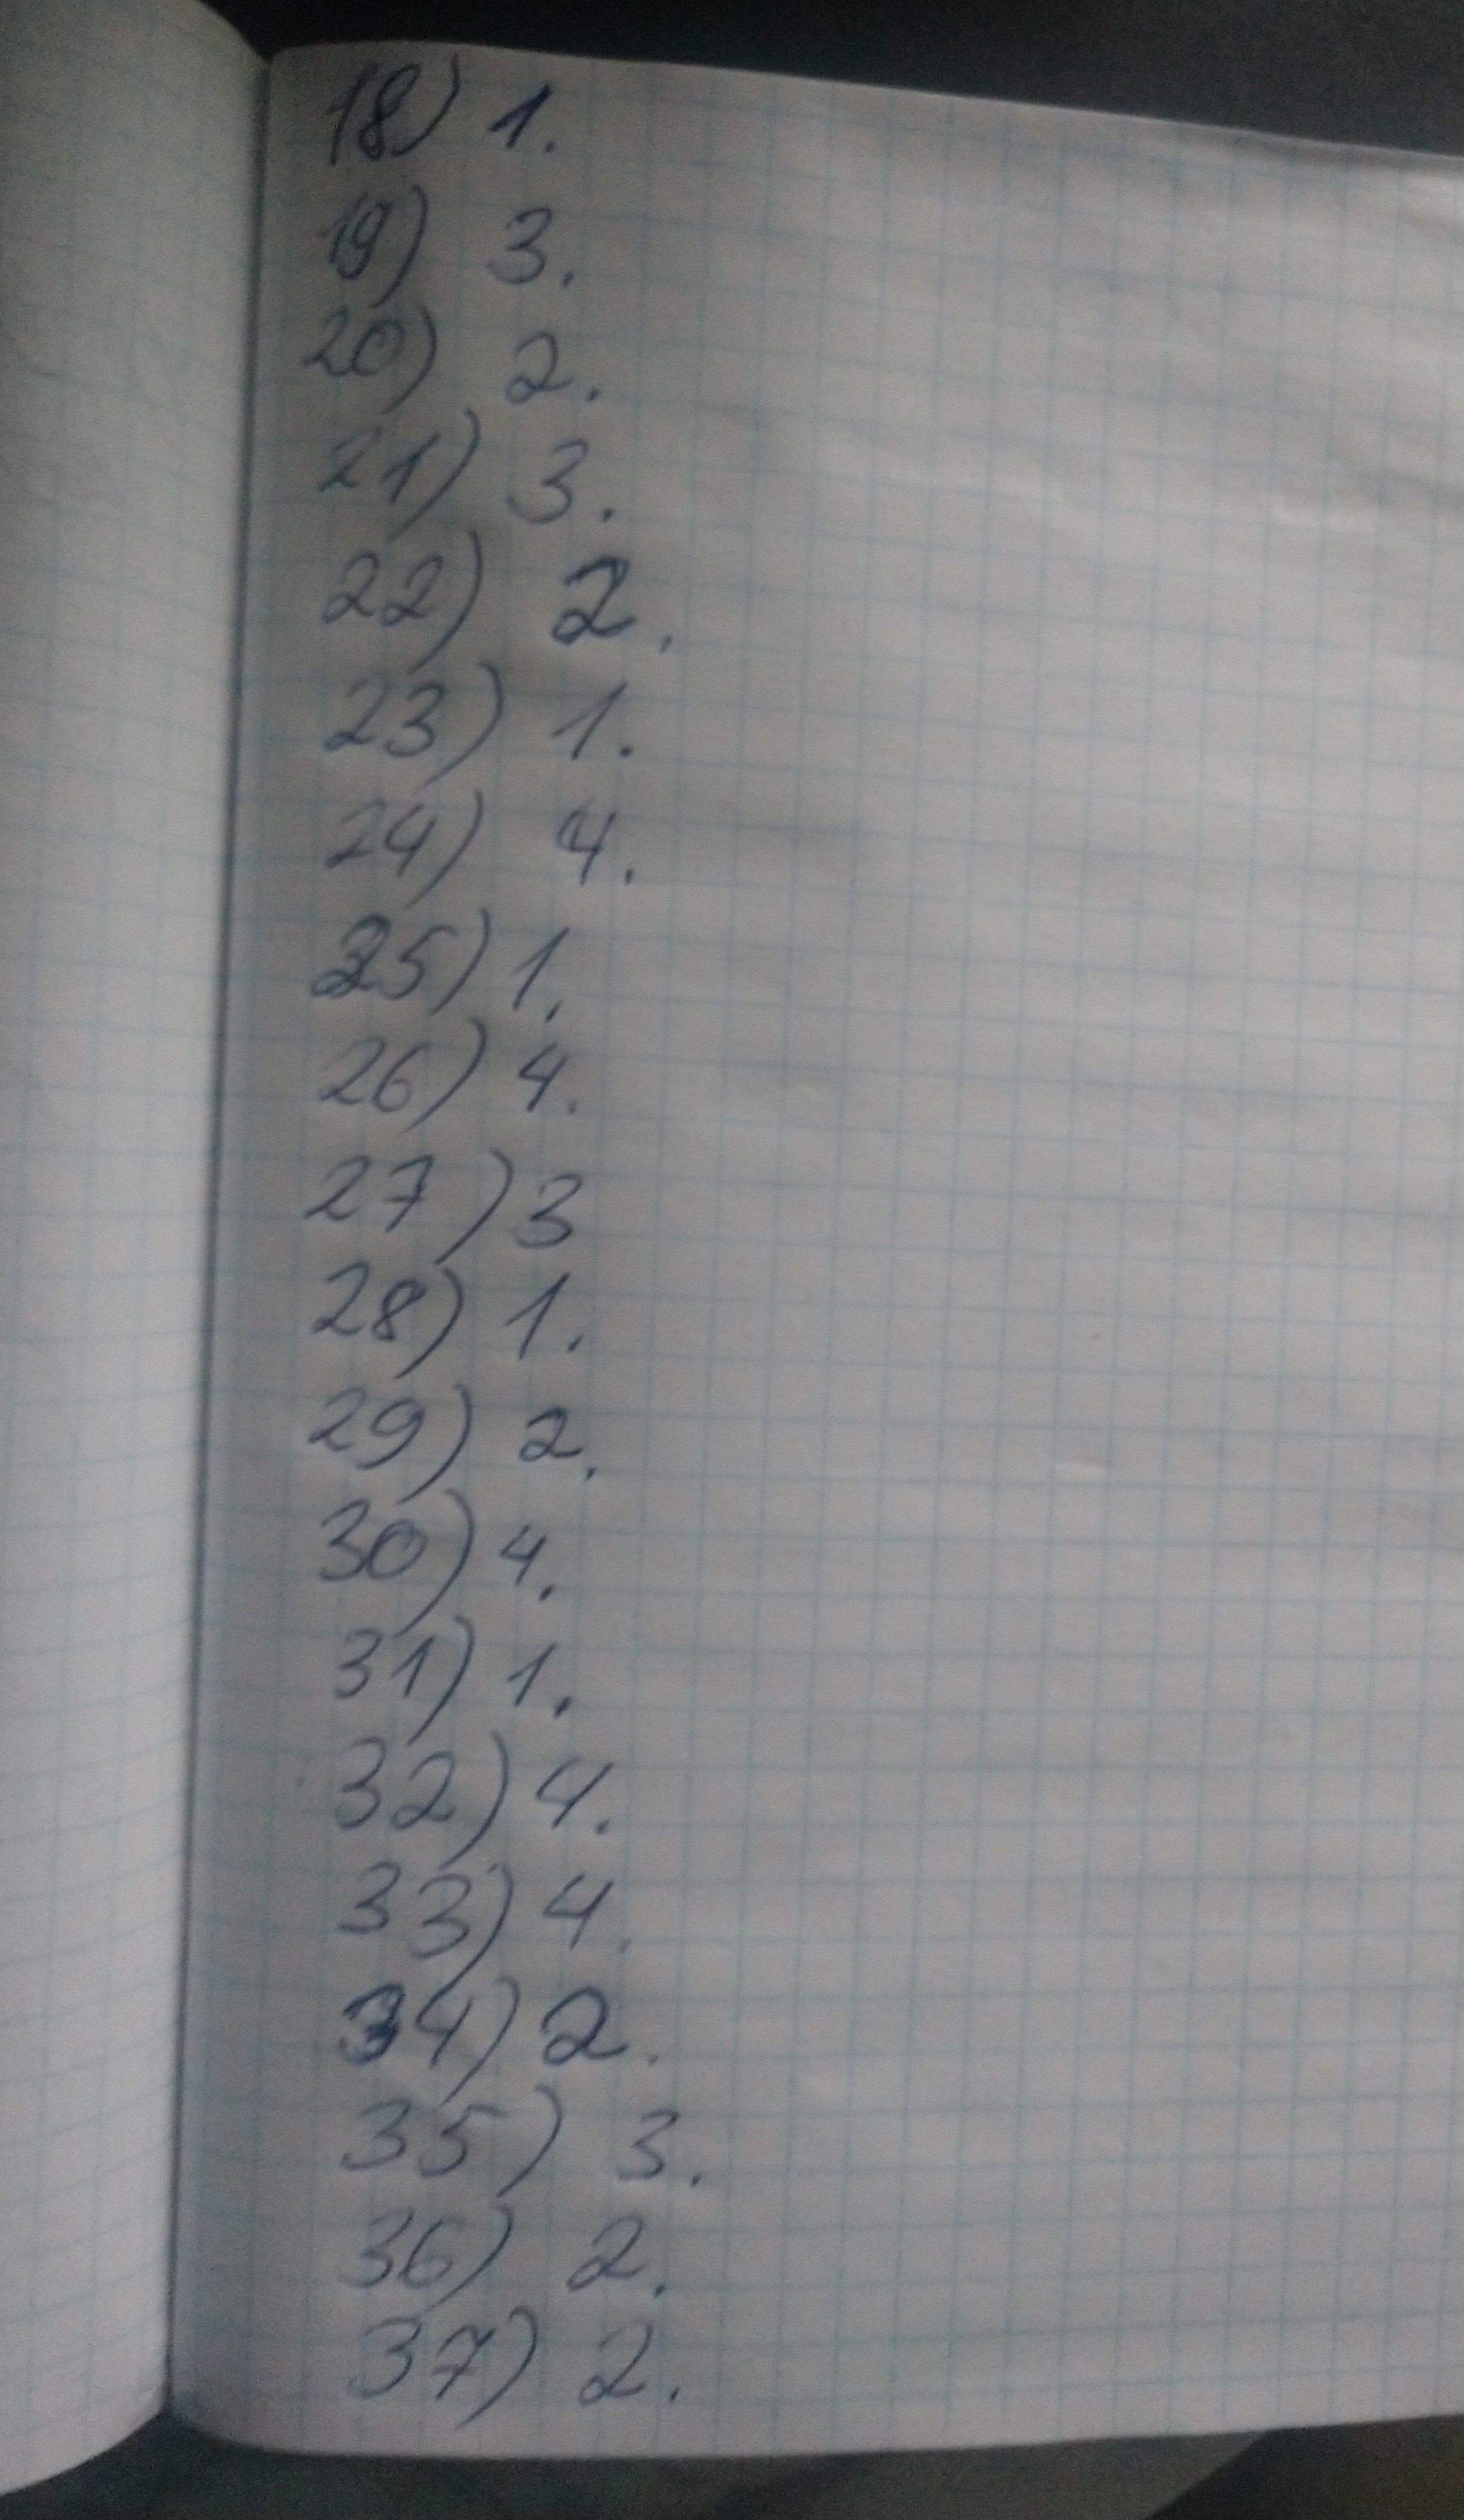 18) 1.
19) 3.
20) 2.
21) 3.
22) 2.
23) 1.
24) 4.
25) 1.
26) 4.
27) 3
28) 1.
29) 2.
30) 4.
31) 1.
32) 4.
33) 4.
34) 2.
35) 3.
36) 2.
37) 2.